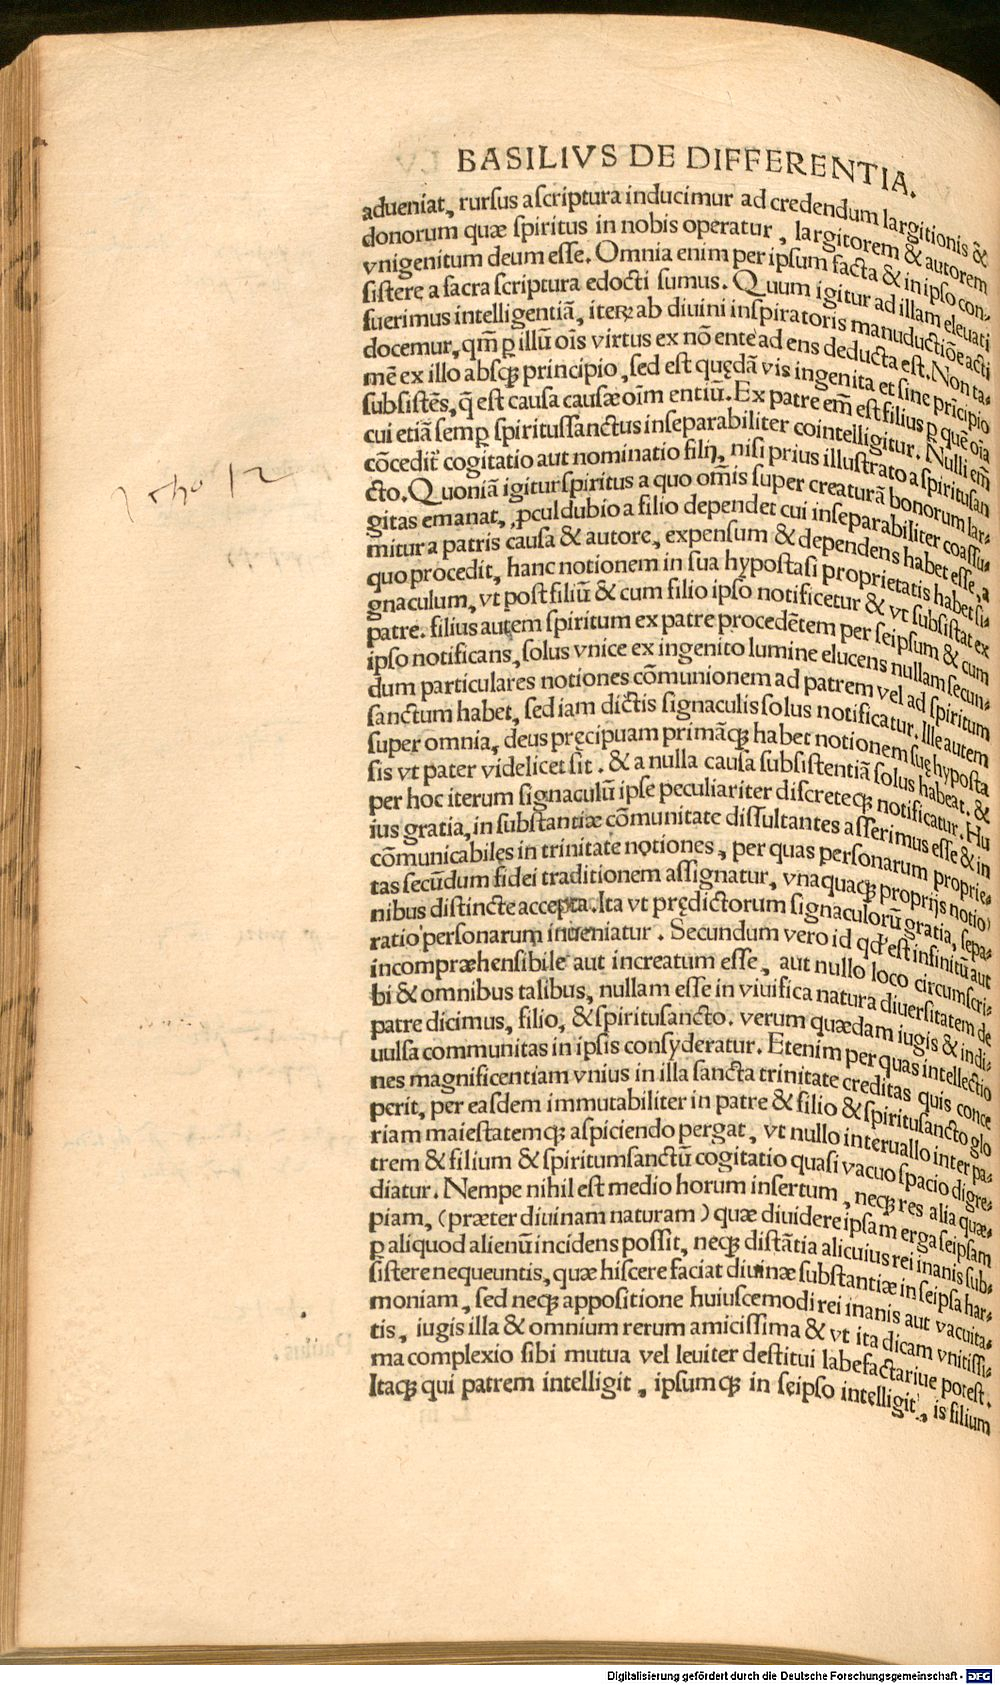 BASILIVS DE DIFFERENTIA.
adueniat, rursus a scriptura inducimur ad credendum largitionis & donorum quæ spiritus in nobis operatur, largitorem & autorem
vnigenitum deum esse. Omnia enim per ipsum facta & in ipso con-
sistere a sacra scriptura edocti sumus. Quum igitur ad illam eleuati
fuerimus intelligentiã, iterꝝ ab diuini inspiratoris manuductiõe acti
docemur, qm̃ ꝑ illũ oĩs virtus ex nõ ente ad ens deducta est. Non ta-
mẽ ex illo absqꝫ principio, sed est quędã vis ingenita et sine prĩcipio
subsistẽs, q̃ est causa causæ oĩm entiũ. Ex patre em̃ est filius ꝑ quẽ oĩa
cui etiã semꝑ spiritussanctus inseparabiliter cointelligitur. Nulli em̃
cõcedit̃ cogitatio aut nominatio filij, nisi prius illustrato a spiritusan
cto. Quoniã igitur spiritus a quo om̃is super creaturã bonorum lar-
gitas emanat, ꝓculdubio a filio dependet cui inseparabiliter coassu-
mitur a patris causa & autore, expensum & dependens habet esse, a
quo procedit, hanc notionem in sua hypostasi proprietatis habet si-
gnaculum, vt post filiũ & cum filio ipso notificetur & vt subsistat ex
patre. filius autem spiritum ex patre procedẽtem per seipsum & cum
ipso notificans, solus vnice ex ingenito lumine elucens nullam secun-
dum particulares notiones cõmunionem ad patrem vel ad spiritum
sanctum habet, sed iam dictis signaculis solus notificatur. Ille autem
super omnia, deus pręcipuam primãqꝫ habet notionem suę hyposta
sis vt pater videlicet sit. & a nulla causa subsistentiã solus habeat. &
per hoc iterum signaculũ ipse peculiariter discreteqꝫ notificatur. Hu
ius gratia, in substantiæ cõmunitate dissultantes asserimus esse & in
cõmunicabiles in trinitate notiones, per quas personarum proprie-
tas secũdum fidei traditionem assignatur, vnaquaqꝫ proprijs notio
nibus distincte accepta. Ita vt prędictorum signaculorũ gratia, sepa-
ratio personarum inueniatur. Secundum vero id qd' est infinitũ aut
incompræhensibile aut increatum esse, aut nullo loco circumscri-
bi & omnibus talibus, nullam esse in viuifica natura diuersitatem de
patre dicimus, filio, & spiritusancto. verum quædam iugis & indi-
uulsa communitas in ipsis consyderatur. Etenim per quas intellectio
nes magnificentiam vnius in illa sancta trinitate creditas quis conce
perit, per easdem immutabiliter in patre & filio & spiritusancto glo
riam maiestatemqꝫ aspiciendo pergat, vt nullo interuallo inter pa-
trem & filium & spiritumsanctũ cogitatio quasi vacuo spacio digre-
diatur. Nempe nihil est medio horum insertum, neqꝫ res alia quæ-
piam, (præter diuinam naturam) quæ diuidere ipsam erga seipsam
ꝑ aliquod alienũ incidens possit, neqꝫ distãtia alicuius rei inanis sub-
sistere nequeuntis, quæ hiscere faciat diuinæ substantiæ in seipsa har-
moniam, sed neqꝫ appositione huiuscemodi rei inanis aut vacuita-
tis, iugis illa & omnium rerum amicissima & vt ita dicam vnitissi-
ma complexio sibi mutua vel leuiter destitui labefactariue potest.
Itaqꝫ qui patrem intelligit, ipsumqꝫ in seipso intelligit, is filium
Digitalisierung gefördert durch die Deutsche Forschungsgemeinschaft - DFG